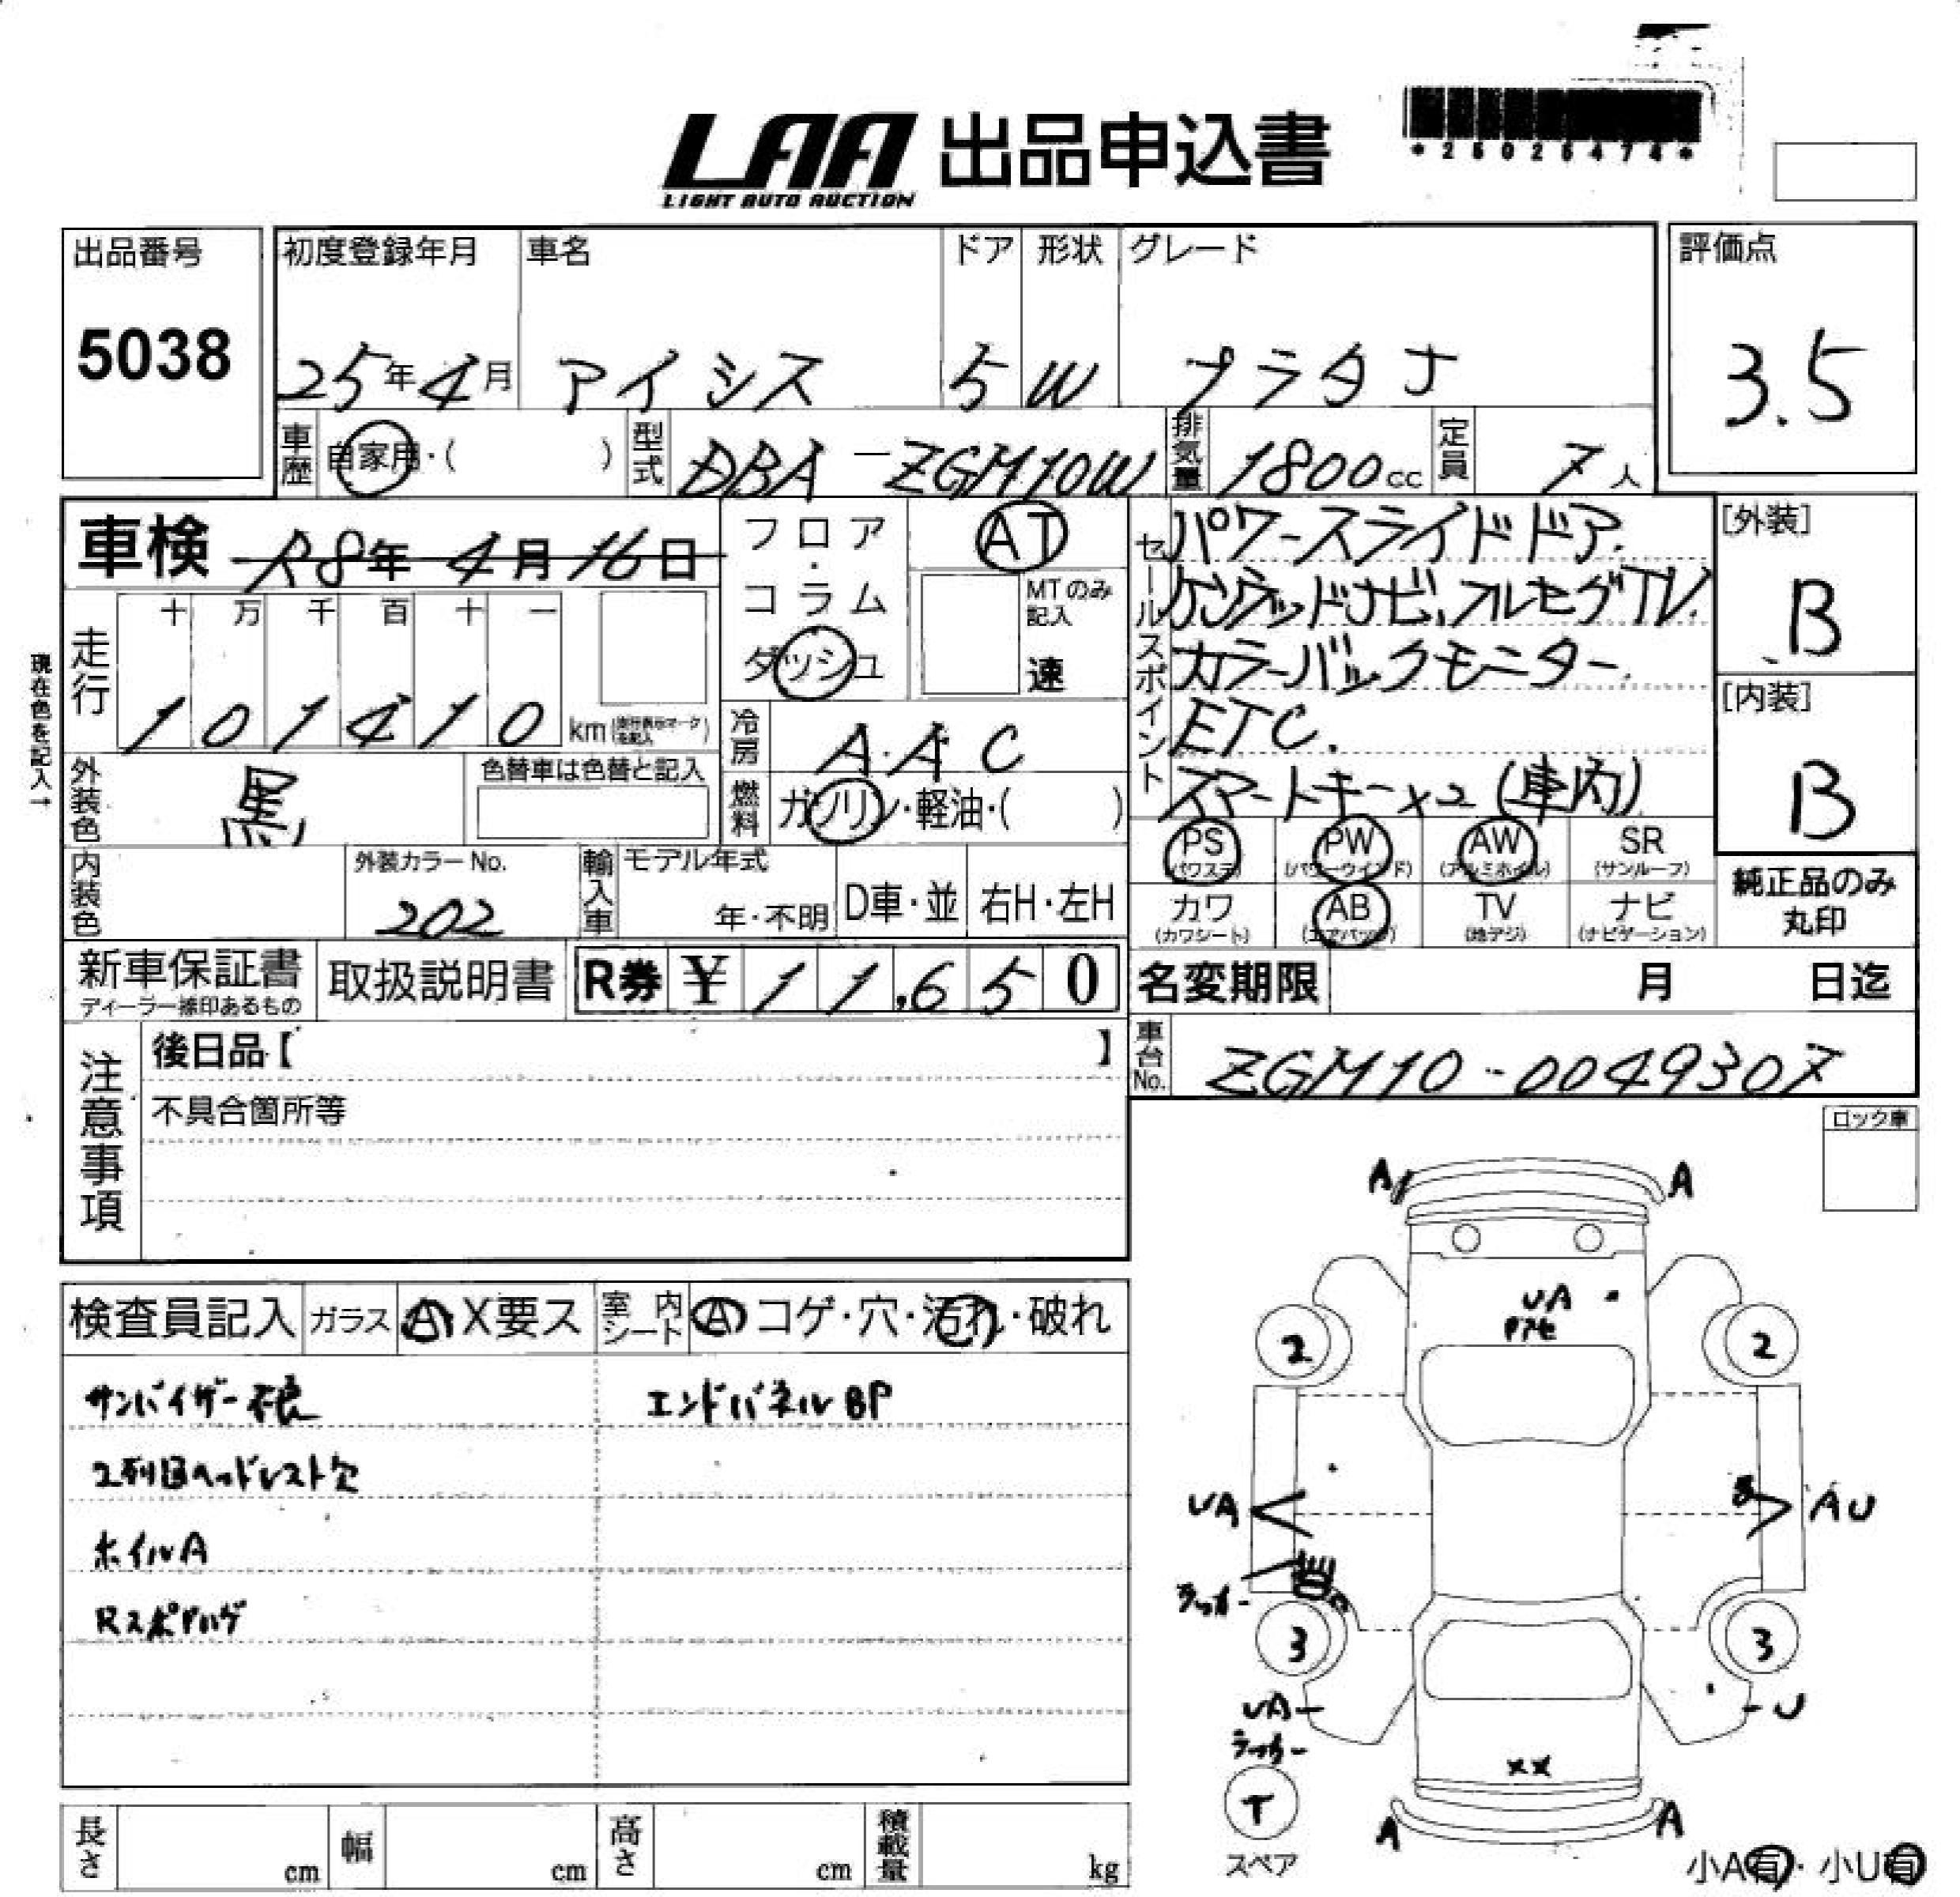 LAA 出品申込書
LIGHT AUTO AUCTION
出品番号
5038
初度登録年月
25年4月
車名
アイシス
ドア
5
形状
W
グレード
プラタナ
評価点
3.5
車歴
自家用・( )
型式
DBA-ZGM10W
排気量
1800cc
定員
7人
車検 R8年 4月16日
フロア・コラム
ダッシュ
AT
MTのみ記入
速
セールスポイント
パワースライドドア.
ケンウッドナビ,フルセグTV.
カラーバックモニター.
ETC.
スマートキー×2 (車内)
[外装]
B
[内装]
B
現在色を記入→
走行
十 万 千 百 十 一
1 0 1 4 1 0 km
冷房
A.A C
外装色
黒
色替車は色替と記入
燃料
ガソリン・軽油・( )
PS (パワステ)
PW (パワーウインド)
AW (アルミホイル)
SR (サンルーフ)
カワ (カワシート)
AB (エアバッグ)
TV (地デジ)
ナビ (ナビゲーション)
純正品のみ丸印
内装色
外装カラーNo.
202
輸入車
モデル年式
年・不明
D車・並
右H・左H
新車保証書
ディーラー捺印あるもの
取扱説明書
R券 ¥ 11,650
名変期限 月 日迄
車台No.
ZGM10-0049307
注意事項
後日品【 】
不具合箇所等
ロック車
検査員記入
ガラス A X要ス
室内シート A コゲ・穴・汚れ・破れ
サンバイザー不良
エンドパネルBP
2列目ヘッドレスト欠
ホイルA
RスポPハゲ
A A
UA
2 2
UA
AU
ラッカー
3 3
UA
U
ラッカー
××
T
スペア
A A
小A有・小U有
長さ cm
幅 cm
高さ cm
積載量 kg